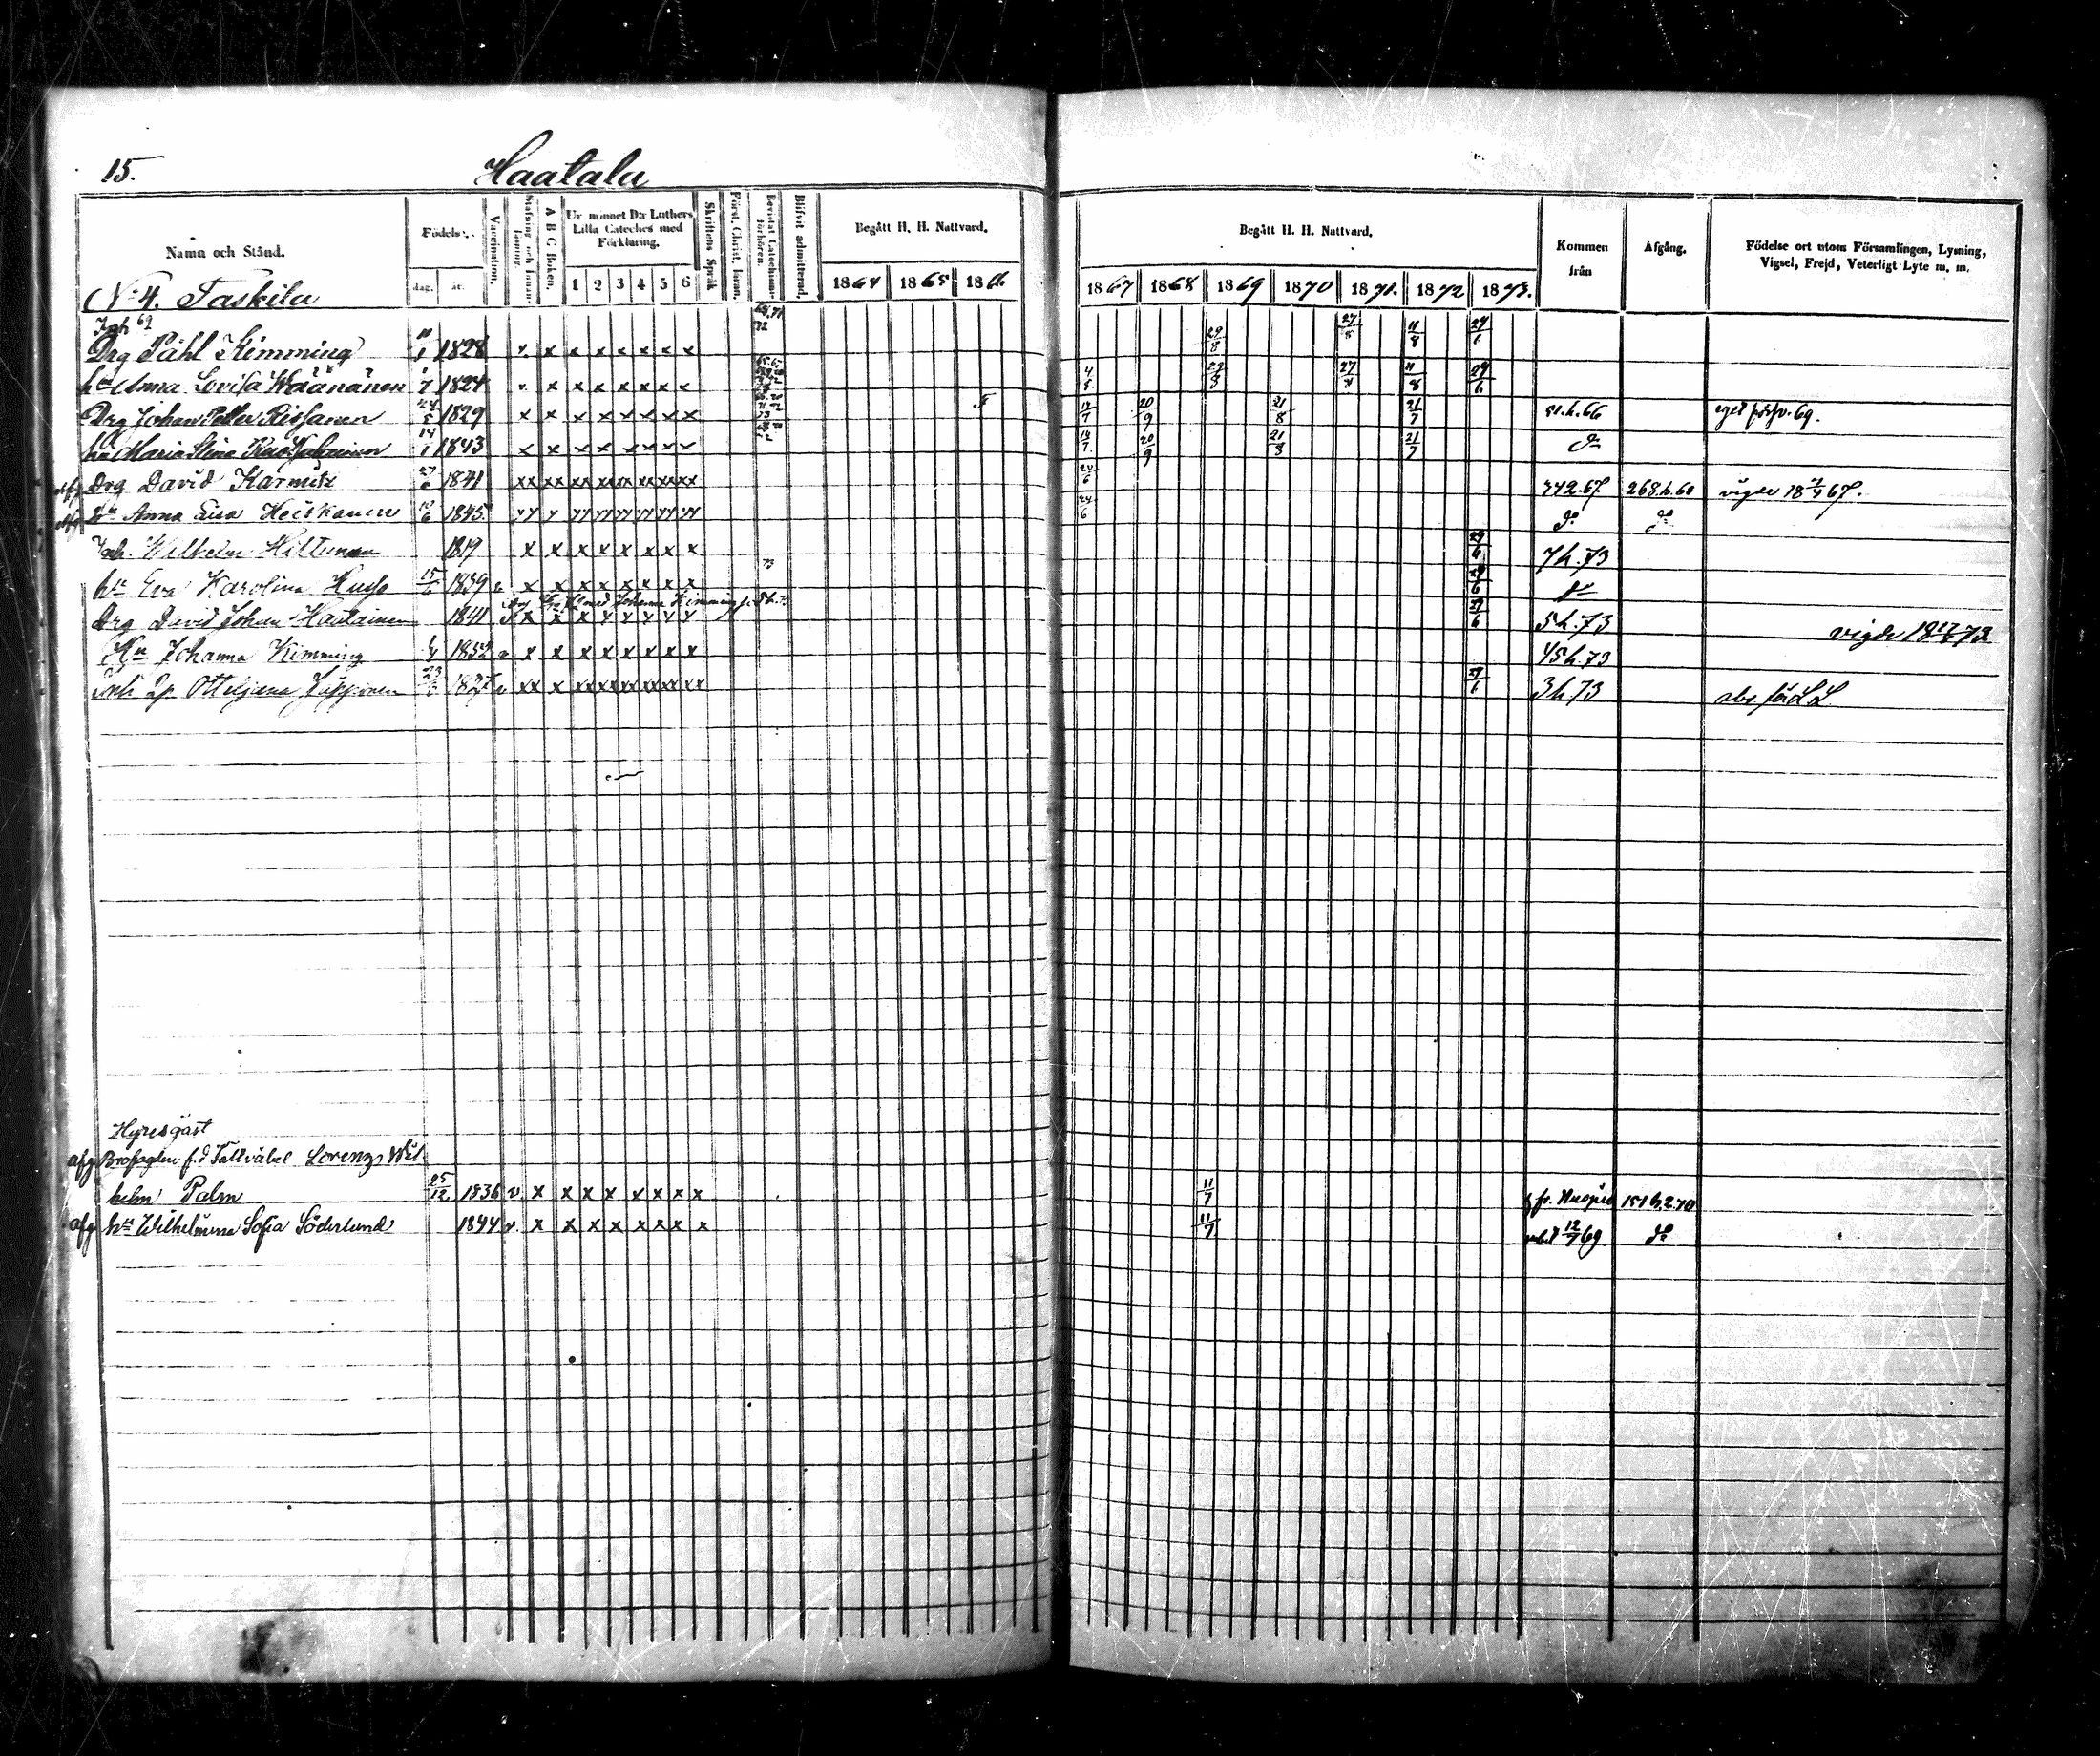 15.
Haatala
Namn och Stånd.
Födelse-
dag. år.
Vaccination.
Stafning och Innanläsning.
A B C Boken.
Ur minnet D:r Luthers Lilla Cateches med Förklaring.
1 2 3 4 5 6
Skriftens Språk
Först. Christ. läran.
Bevistat Catechismi-förhören.
Blifvit admitterad.
Begått H. H. Nattvard.
1864 1865 1866
Begått H. H. Nattvard.
1867 1868 1869 1870 1871. 1872 1873.
Kommen från
Afgång.
Födelse ort utom Församlingen, Lysning, Vigsel, Frejd, Veterligt Lyte m. m.
N:o 4. Taskila
Inh 69
Drg Påhl Kimming 10/1 1828 v. x x x x x x x 29/8 27/8 11/8 29/6
hu Anna Lovisa Wäänänen 1824 v. x x x x x x x 4/8 29/8 27/8 11/8 29/6
Drg Johan Petter Rissanen 24/5 1829 x x x x x x x x F 14/7 20/9 21/8 21/7 51.h.66 69.
hu Maria Stina 14/1 1843 x x x x x x x x 14/7 20/9 21/8 21/7 d:o
afg Drg David Karmitz 27/6 1841 xx xx xx xx xx xx xx xx 24/6 442.67 268.h.60 vigde 18 2/4 67.
afg hu Anna Lisa Heiskanen 10/6 1845. 24/6 d:o d:o
Inh. Wilhelm Hiltunen 1819 x x x x x x x x 29/6 7h.73
hu Eva Karolina Husso 15/6 1839 v x x x x x x x x 73 29/6 d:o
med Johanna Kimming
Drg David Johan Hautainen 1841 x x x 29/6 5h.73 vigde 18 73
Hu Johanna Kimming 1852 v x x x x x x x x 45h.73
Inh Ottiljana 1827 v xx x xx xx xx xx xx xx 29/6 3h.73 abs för L L
Hyresgäst
afg f.d Fältväbel Lorenz Wil-
helm Palm 25/12. 1836 v. x x x x x x x x 11/7 fr. Kuopio 151 h, 2.70
afg hu Wilhelmina Sofia Söderlund 1844 v. x x x x x x x x 11/7 12/7 69. d:o